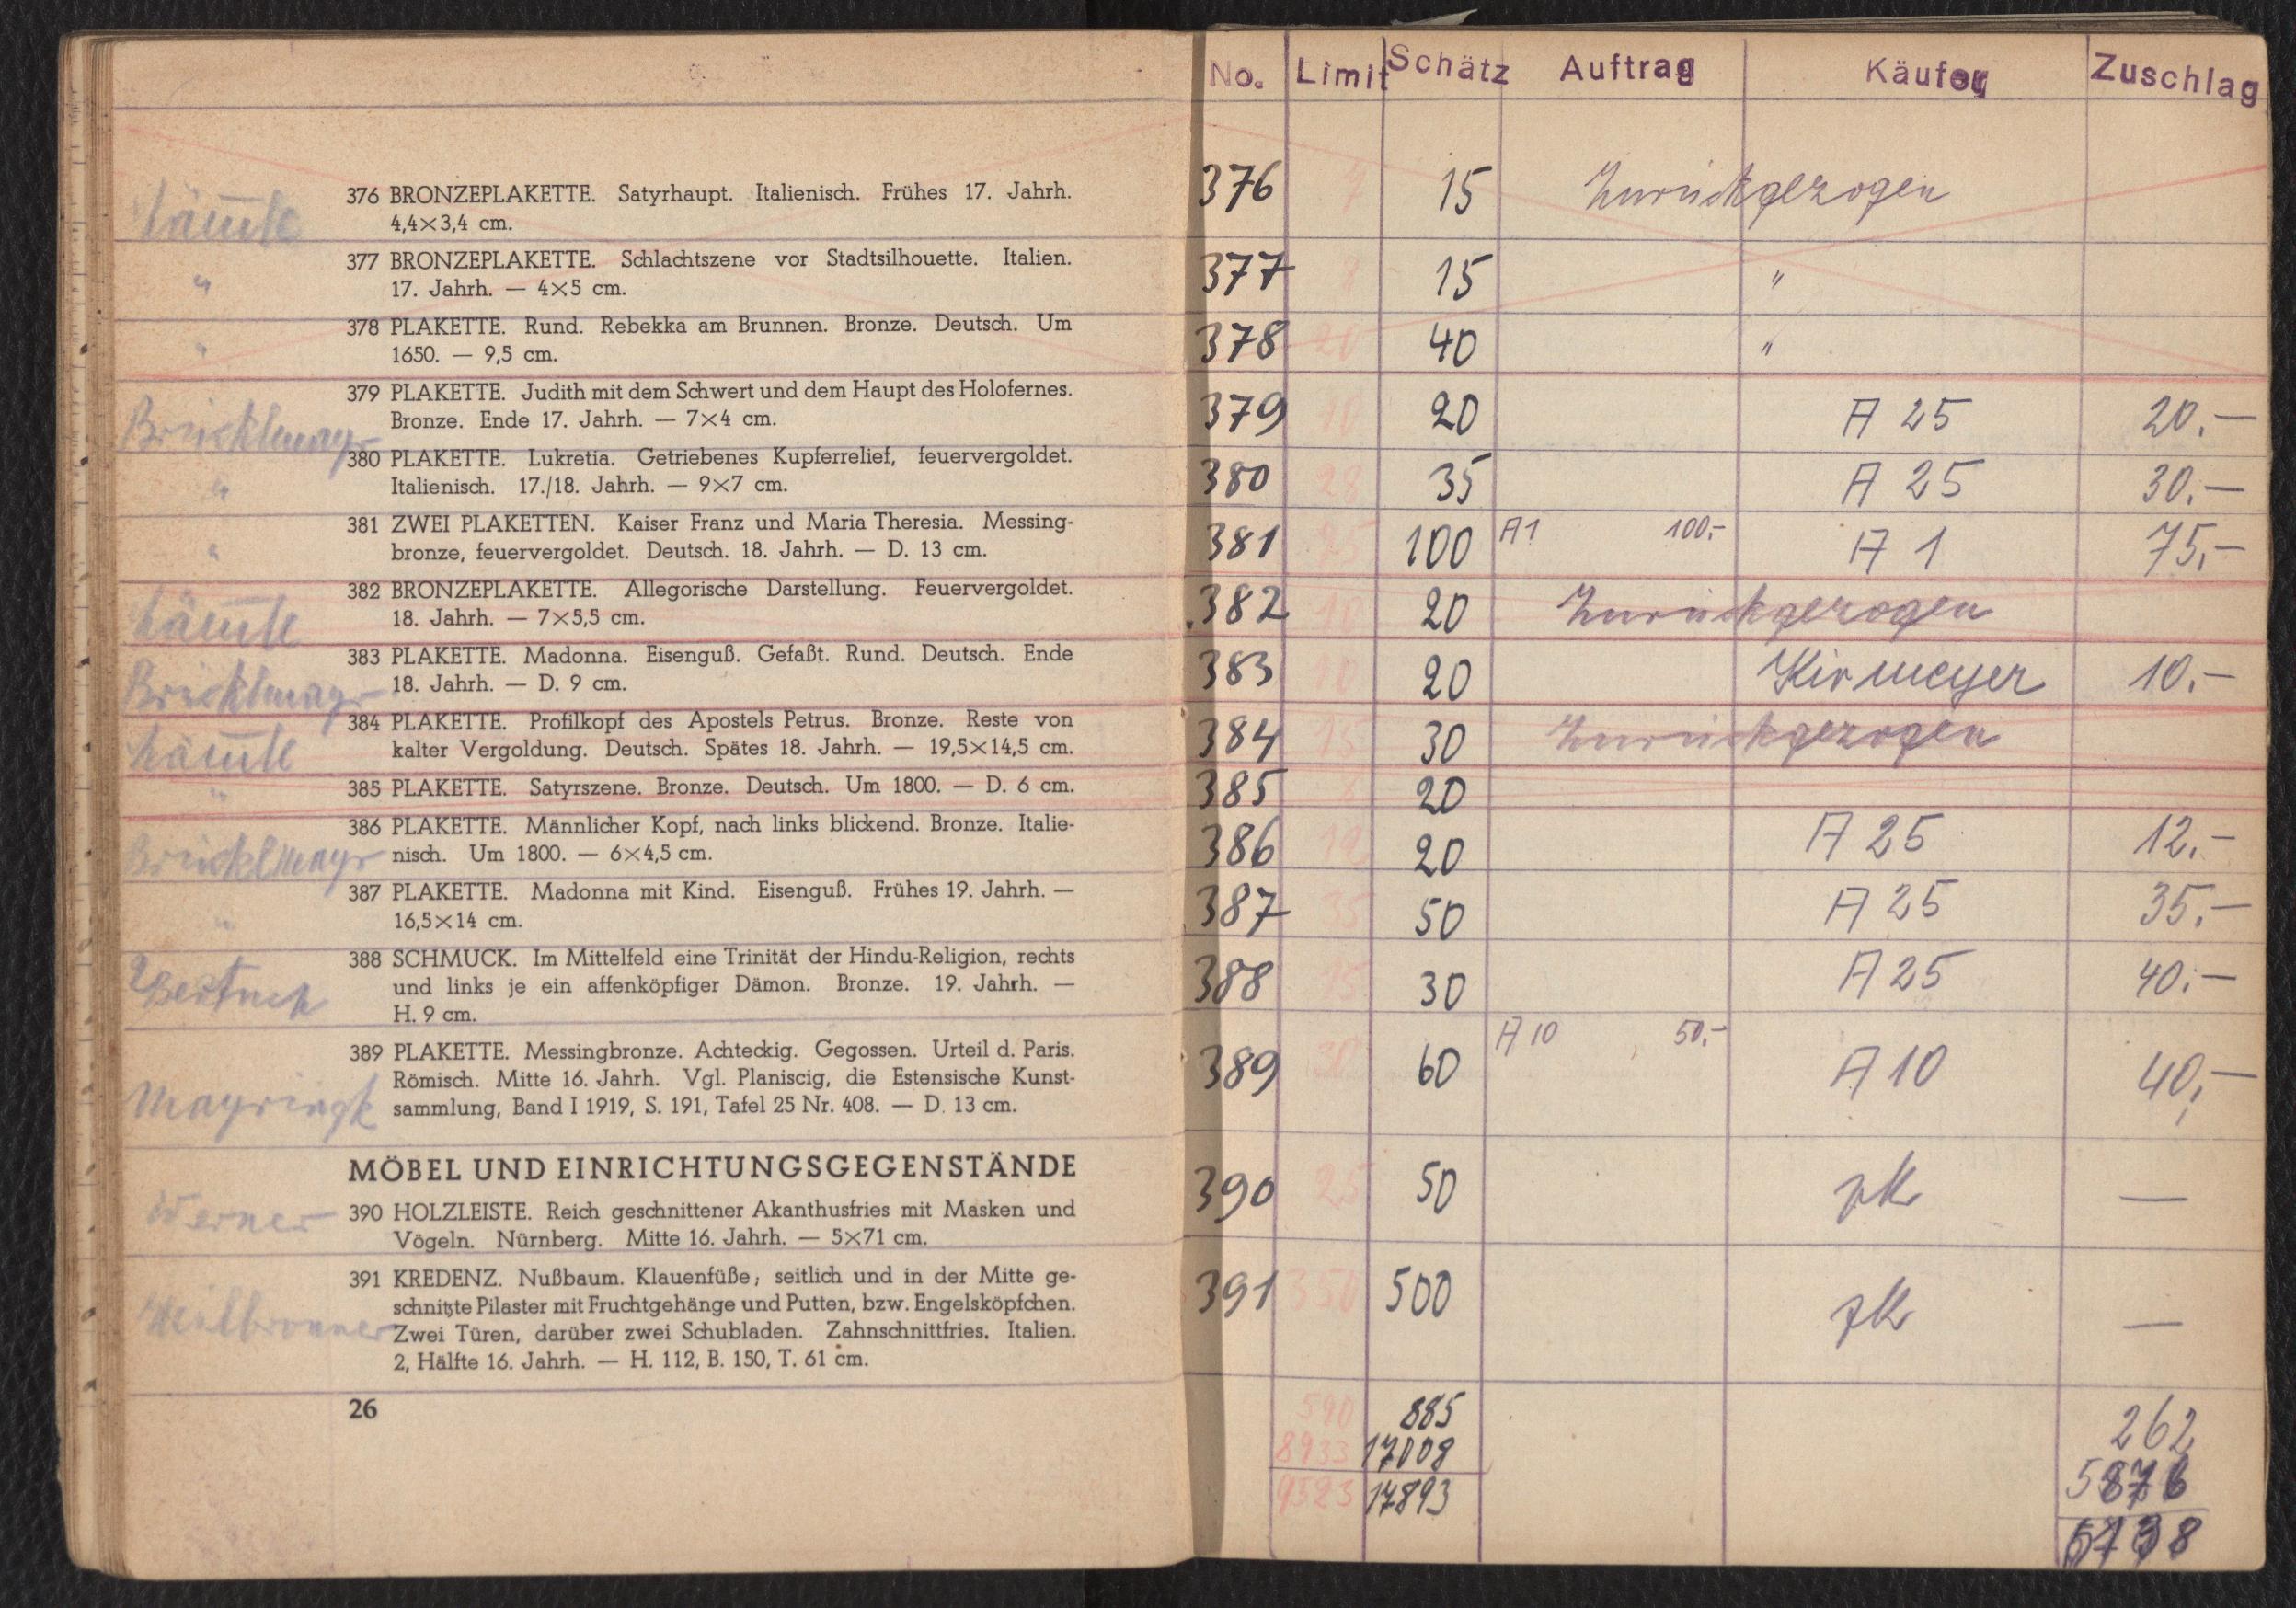 Lämle
376 BRONZEPLAKETTE. Satyrhaupt. Italienisch. Frühes 17. Jahrh.
4,4×3,4 cm.
"
377 BRONZEPLAKETTE. Schlachtszene vor Stadtsilhouette. Italien.
17. Jahrh. — 4×5 cm.
"
378 PLAKETTE. Rund. Rebekka am Brunnen. Bronze. Deutsch. Um
1650. — 9,5 cm.
Brücklmayr
379 PLAKETTE. Judith mit dem Schwert und dem Haupt des Holofernes.
Bronze. Ende 17. Jahrh. — 7×4 cm.
"
380 PLAKETTE. Lukretia. Getriebenes Kupferrelief, feuervergoldet.
Italienisch. 17./18. Jahrh. — 9×7 cm.
"
381 ZWEI PLAKETTEN. Kaiser Franz und Maria Theresia. Messing-
bronze, feuervergoldet. Deutsch. 18. Jahrh. — D. 13 cm.
Lämle
382 BRONZEPLAKETTE. Allegorische Darstellung. Feuervergoldet.
18. Jahrh. — 7×5,5 cm.
Brücklmayr
383 PLAKETTE. Madonna. Eisenguß. Gefaßt. Rund. Deutsch. Ende
18. Jahrh. — D. 9 cm.
Lämle
384 PLAKETTE. Profilkopf des Apostels Petrus. Bronze. Reste von
kalter Vergoldung. Deutsch. Spätes 18. Jahrh. — 19,5×14,5 cm.
"
385 PLAKETTE. Satyrszene. Bronze. Deutsch. Um 1800. — D. 6 cm.
Brücklmayr
386 PLAKETTE. Männlicher Kopf, nach links blickend. Bronze. Italie-
nisch. Um 1800. — 6×4,5 cm.
"
387 PLAKETTE. Madonna mit Kind. Eisenguß. Frühes 19. Jahrh. —
16,5×14 cm.
388 SCHMUCK. Im Mittelfeld eine Trinität der Hindu-Religion, rechts
und links je ein affenköpfiger Dämon. Bronze. 19. Jahrh. —
H. 9 cm.
389 PLAKETTE. Messingbronze. Achteckig. Gegossen. Urteil d. Paris.
Römisch. Mitte 16. Jahrh. Vgl. Planiscig, die Estensische Kunst-
Mayringk
sammlung, Band I 1919, S. 191, Tafel 25 Nr. 408. — D. 13 cm.
MÖBEL UND EINRICHTUNGSGEGENSTÄNDE
Werner
390 HOLZLEISTE. Reich geschnittener Akanthusfries mit Masken und
Vögeln. Nürnberg. Mitte 16. Jahrh. — 5×71 cm.
Heilbronner
391 KREDENZ. Nußbaum. Klauenfüße; seitlich und in der Mitte ge-
schnitzte Pilaster mit Fruchtgehänge und Putten, bzw. Engelsköpfchen.
Zwei Türen, darüber zwei Schubladen. Zahnschnittfries. Italien.
2, Hälfte 16. Jahrh. — H. 112, B. 150, T. 61 cm.
26
No. Limit Schätz Auftrag Käufer Zuschlag
376 15 Zurückgezogen
377 8 15 "
378 20 40 "
379 10 20 A 25 20.—
380 28 35 A 25 30.—
381 75 100 A1 100.- A 1 75,-
382 10 20 Zurückgezogen
383 10 20 Kirmeyer 10.-
384 15 30 Zurückgezogen
385 8 20
386 12 20 A 25 12.-
387 35 50 A 25 35.—
388 15 30 A 25 40.—
389 30 60 A 10 50.- A 10 40,—
390 25 50 zk —
391 350 500 zk —
590 885 262
8933 17008 5876
9523 17893 6138